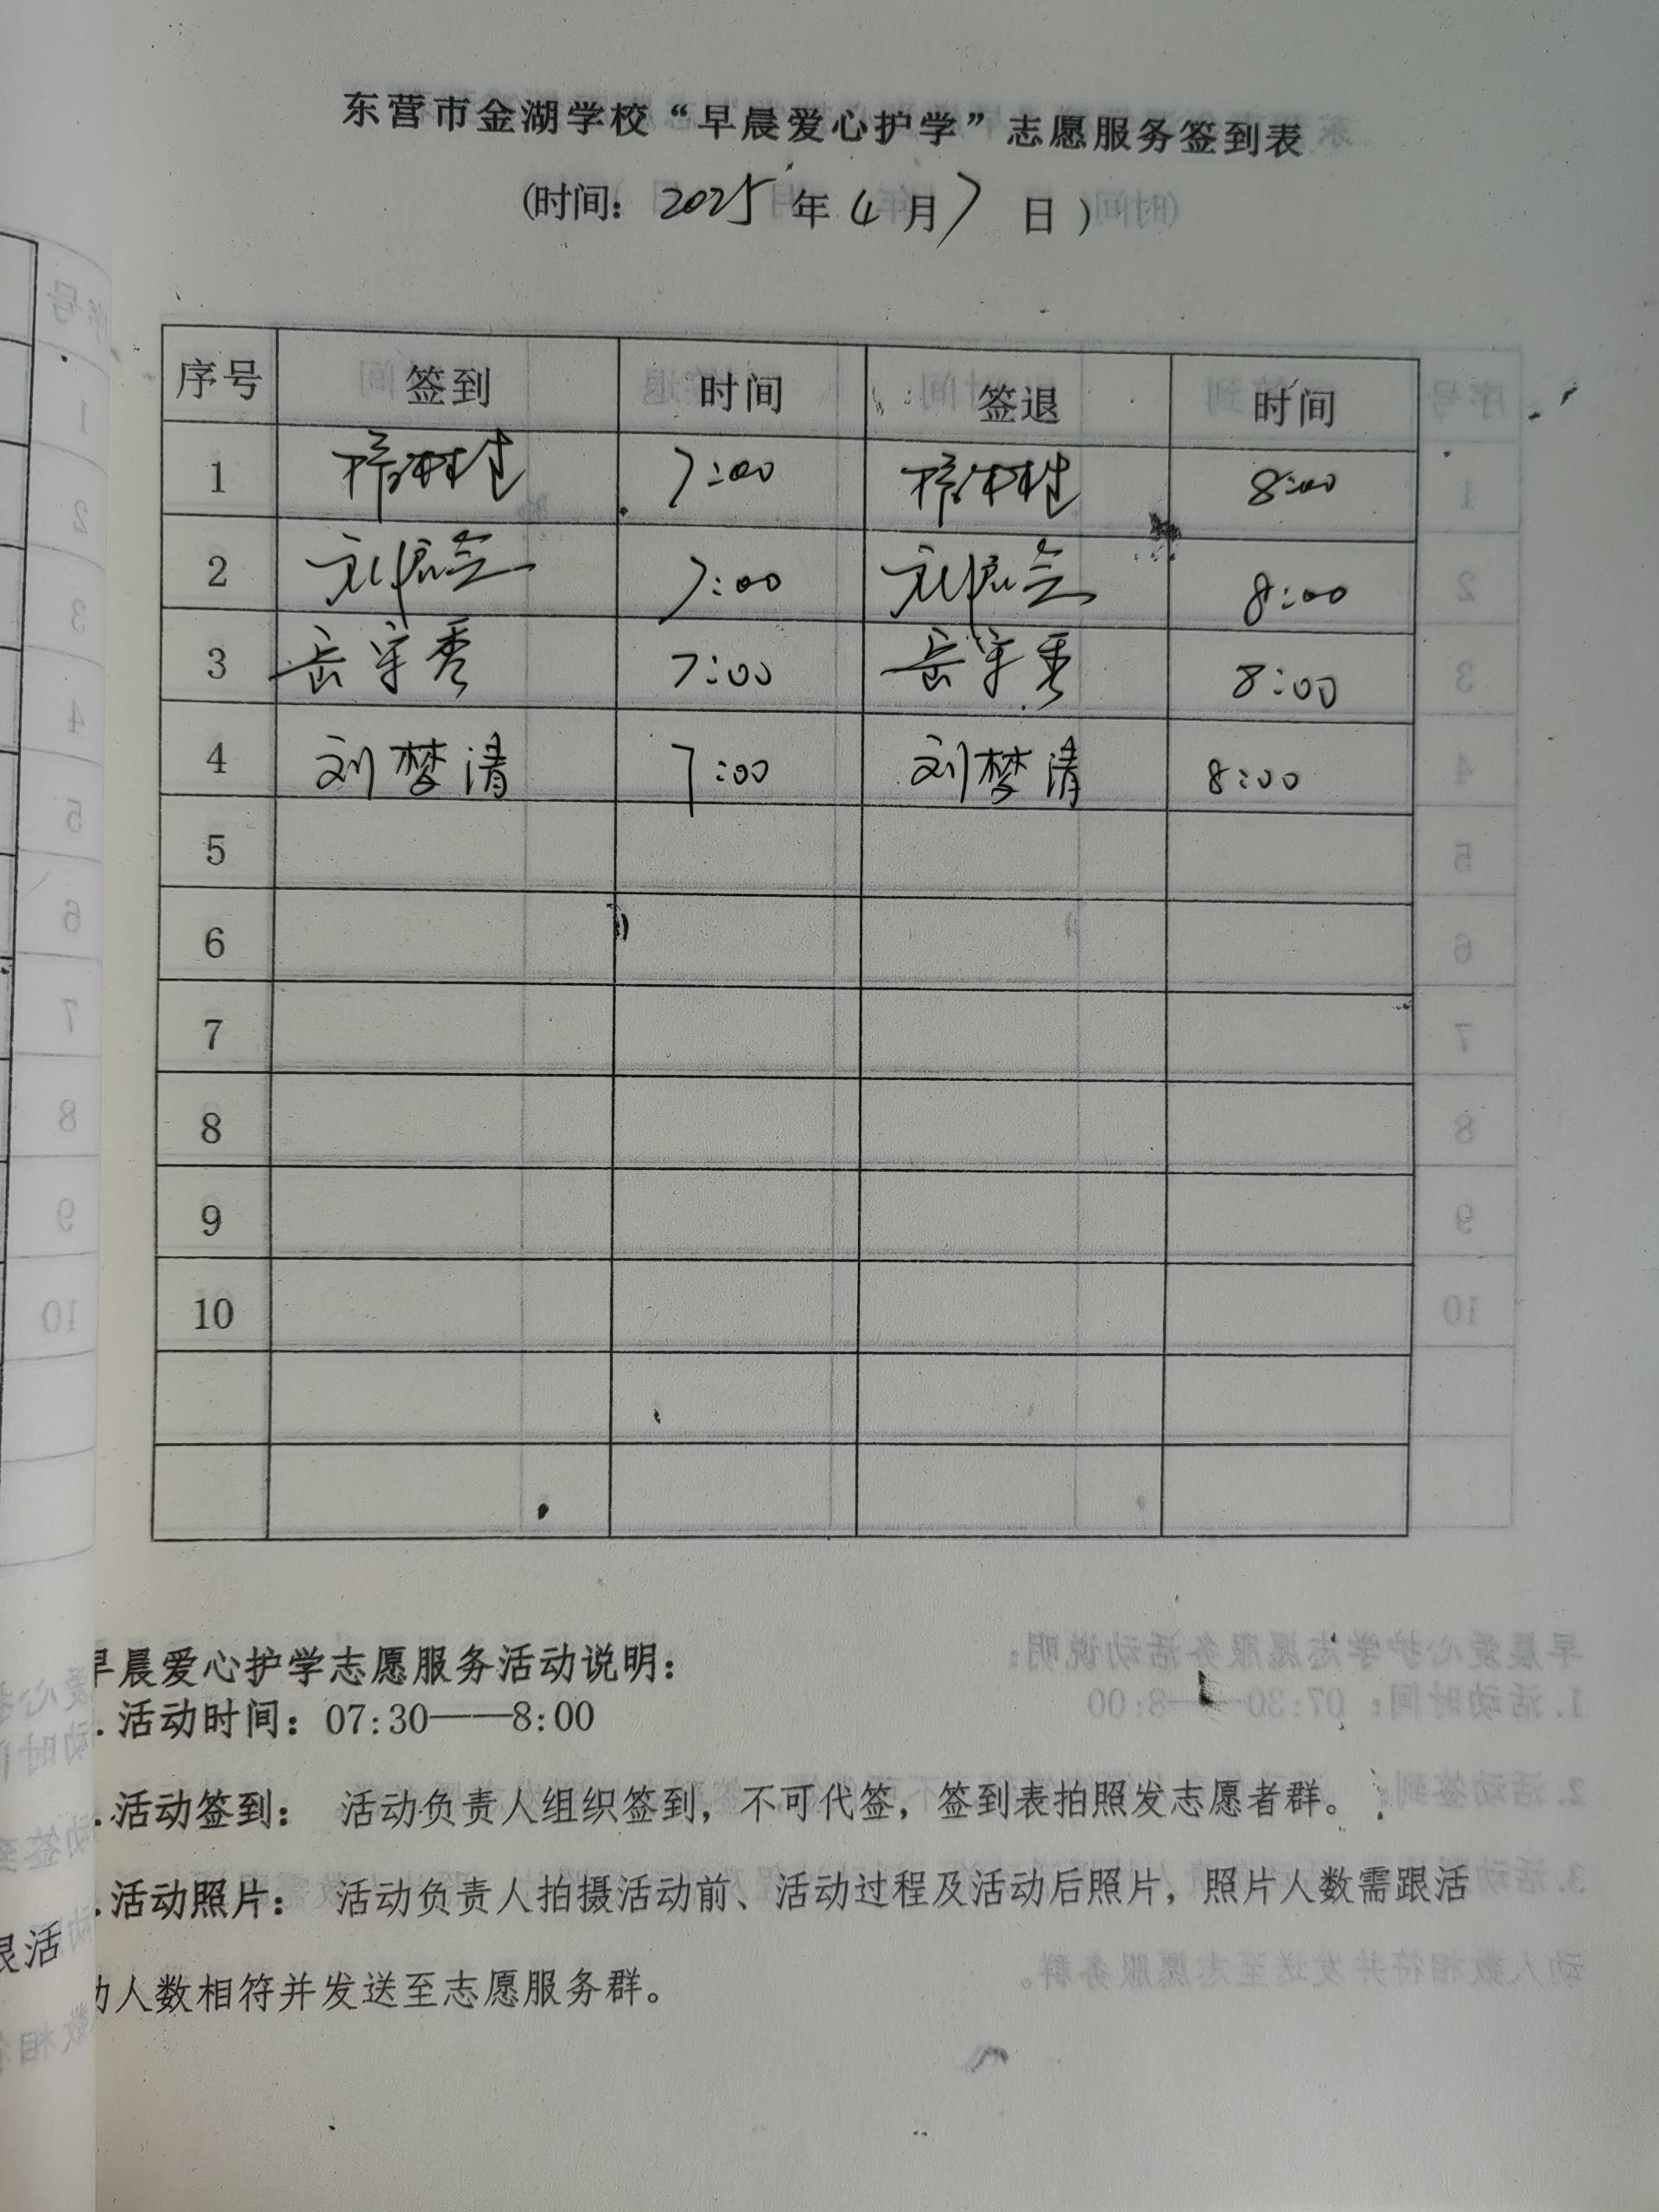 东营市金湖学校“早晨爱心护学”志愿服务签到表
(时间: 2025 年 4 月 7 日 )
序号 签到 时间 签退 时间
1 7:00 8:00
2 7:00 8:00
3 岳宇秀 7:00 岳宇秀 8:00
4 刘梦清 7:00 刘梦清 8:00
5
6
7
8
9
10
早晨爱心护学志愿服务活动说明:
.活动时间: 07:30——8:00
.活动签到: 活动负责人组织签到, 不可代签, 签到表拍照发志愿者群。
.活动照片: 活动负责人拍摄活动前、活动过程及活动后照片, 照片人数需跟活
动人数相符并发送至志愿服务群。